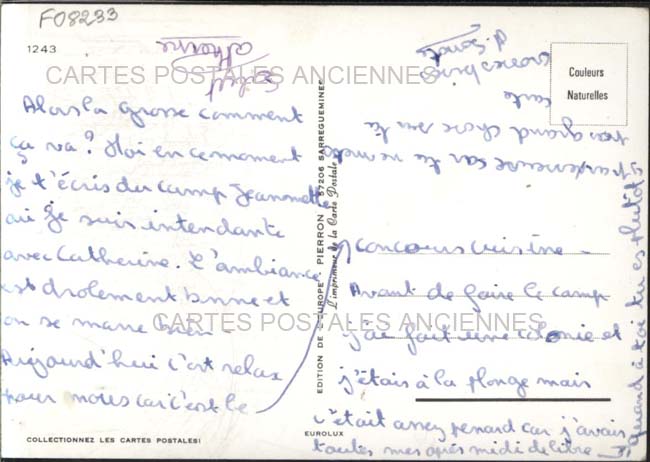 F08233
1243
CARTES POSTALES ANCIENNES
Alors la grosse comment
ça va? Moi en ce moment
je t'écris du camp Jeannette
où je suis intendante
avec Catherine. L'ambiance
est drolement bonne et
on se marre bien -
Aujourd'hui c'est relax
pour nous car c'est le
concours cuisine -
Avant de faire le camp
j'ai fait une colonie et
j'étais à la plonge mais
c'était assez penard car j'avais
toutes mes après midi de libre -
quand à toi tu es plutôt
paresseuse car tu ne mets
pas grand chose sur ta
carte
grosses bises
Catherine
CARTES POSTALES ANCIENNES
EDITION DE L'EUROPE - PIERRON - 57206 SARREGUEMINES
L'imprimeur de la Carte Postale
Couleurs
Naturelles
COLLECTIONNEZ LES CARTES POSTALES!
EUROLUX